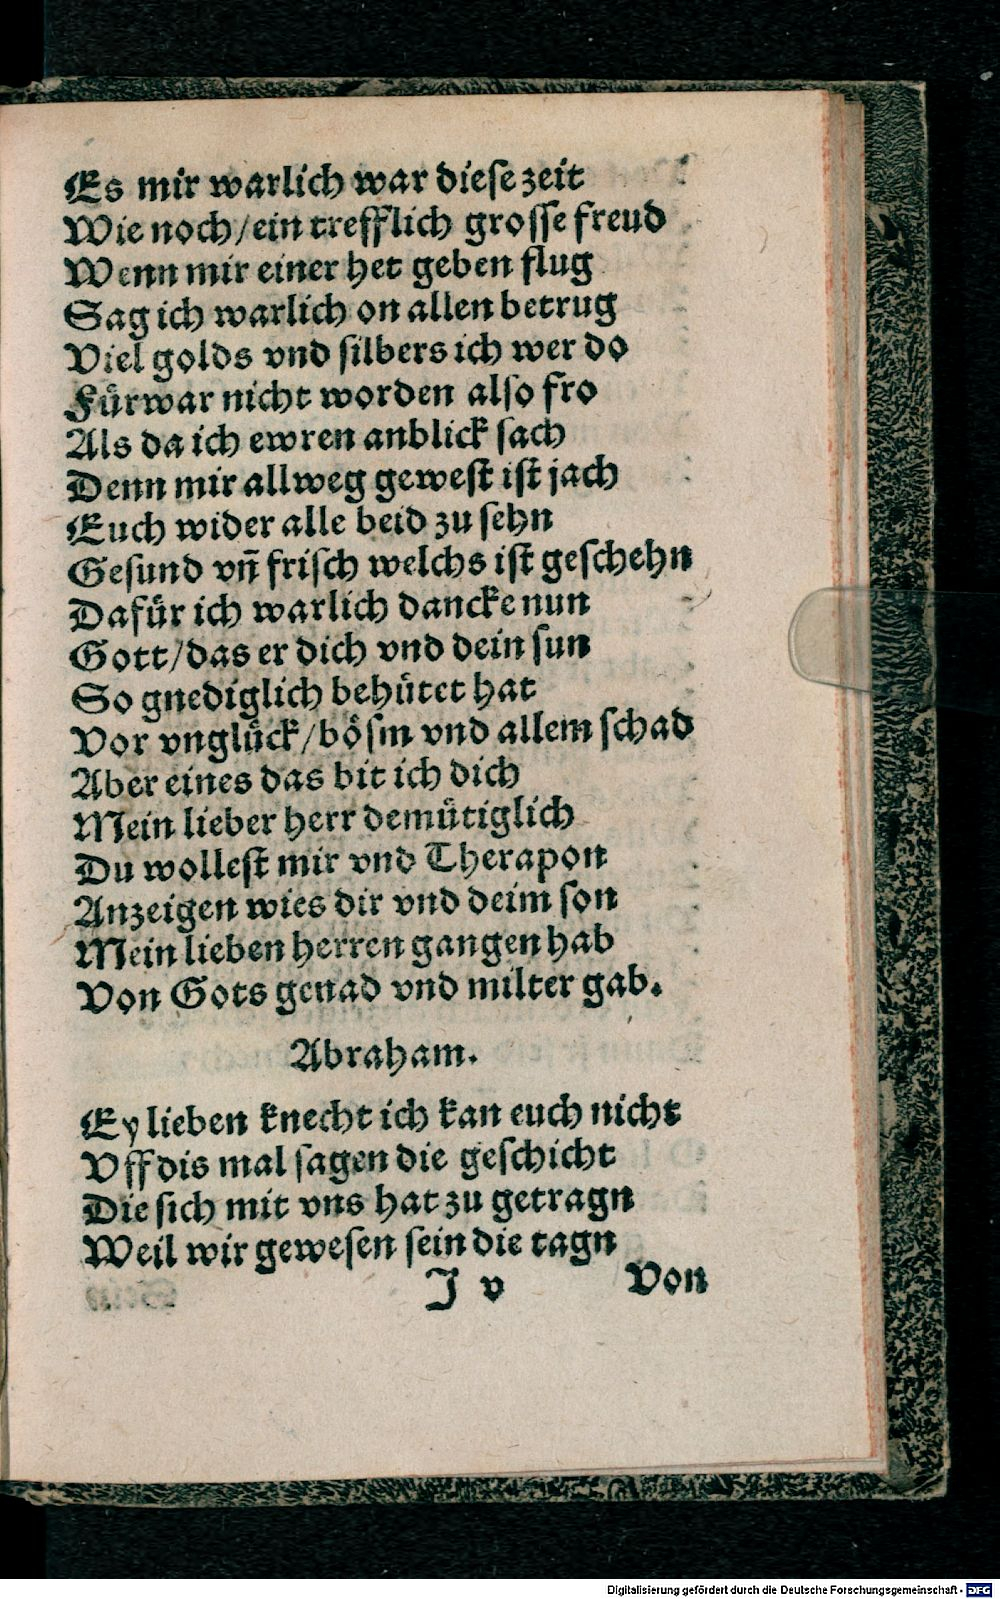 Es mir warlich war diese zeit
Wie noch/ein trefflich grosse freud
Wenn mir einer het geben flug
Sag ich warlich on allen betrug
Viel golds vnd silbers ich wer do
Fürwar nicht worden also fro
Als da ich ewren anblick sach
Denn mir allweg gewest ist jach
Euch wider alle beid zu sehn
Gesund vñ frisch welchs ist geschehn
Dafür ich warlich dancke nun
Gott/das er dich vnd dein sun
So gnediglich behütet hat
Vor vnglück/bösm vnd allem schad
Aber eines das bit ich dich
Mein lieber herr demütiglich
Du wollest mir vnd Therapon
Anzeigen wies dir vnd deim son
Mein lieben herren gangen hab
Von Gots genad vnd milter gab.
Abraham.
Ey lieben knecht ich kan euch nicht
Vff dis mal sagen die geschicht
Die sich mit vns hat zu getragn
Weil wir gewesen sein die tagn
J v Von
Digitalisierung gefördert durch die Deutsche Forschungsgemeinschaft - DFG